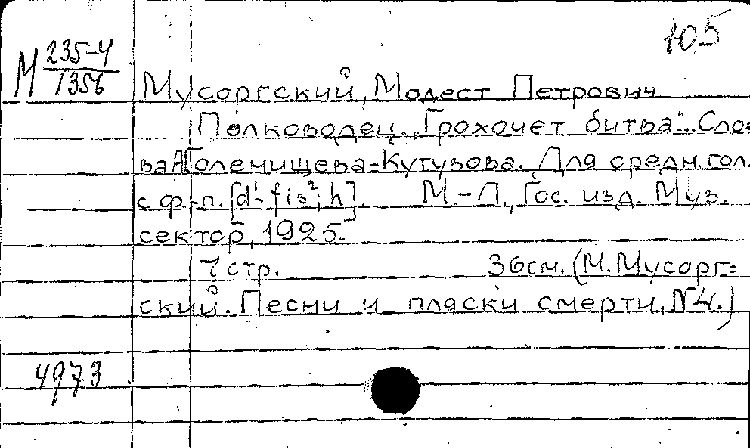 105
М 235-4/1356
Мусоргский, Модест Петрович
Полководец. "Грохочет битва"... Сло=
ва А.Големищева-Кутузова. Для средн. гол.
с ф.-п. [d¹-fis²; h]. М.-Л., Гос. изд. Муз.
сектор, 1925.
7 стр. 36см. (М. Мусорг=
ский. Песни и пляски смерти, №4.)
4973